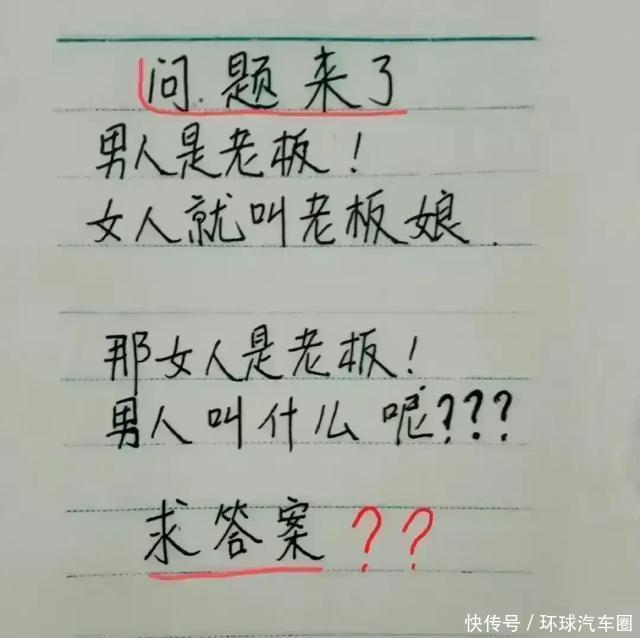 问题来了
男人是老板！
女人就叫老板娘.
那女人是老板！
男人叫什么呢???
求答案??
快传号/环球汽车圈